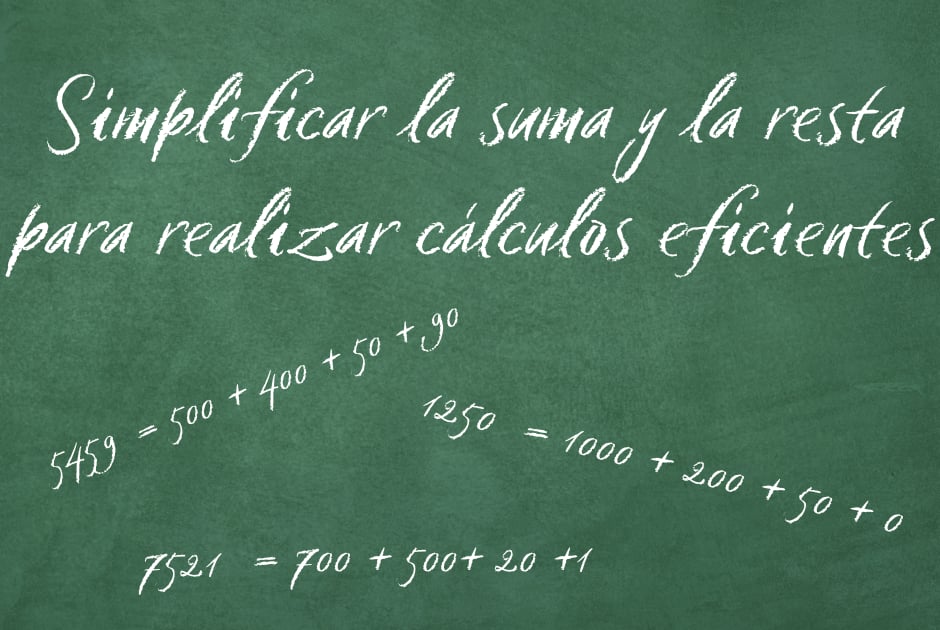 Simplificar la suma y la resta
para realizar cálculos eficientes
5459 = 500 + 400 + 50 + 90
1250 = 1000 + 200 + 50 + 0
7521 = 700 + 500+ 20 +1